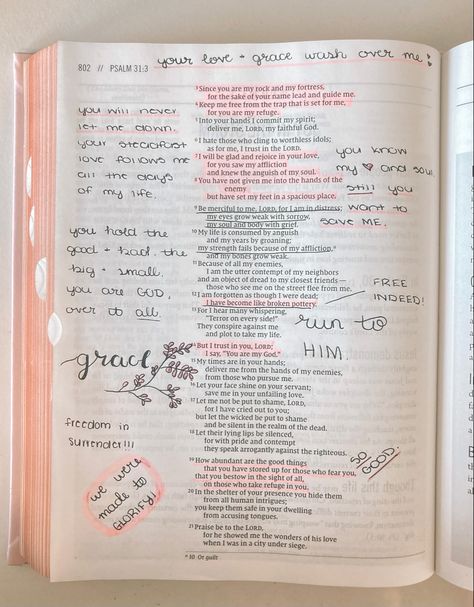 802 // PSALM 31:3
your love + grace wash over me!
³Since you are my rock and my fortress,
for the sake of your name lead and guide me.
⁴Keep me free from the trap that is set for me,
for you are my refuge.
⁵Into your hands I commit my spirit;
deliver me, LORD, my faithful God.
⁶I hate those who cling to worthless idols;
as for me, I trust in the LORD.
⁷I will be glad and rejoice in your love,
for you saw my affliction
and knew the anguish of my soul.
⁸You have not given me into the hands of the
enemy
but have set my feet in a spacious place.
⁹Be merciful to me, LORD, for I am in distress;
my eyes grow weak with sorrow,
my soul and body with grief.
¹⁰My life is consumed by anguish
and my years by groaning;
my strength fails because of my affliction,ᵃ
and my bones grow weak.
¹¹Because of all my enemies,
I am the utter contempt of my neighbors
and an object of dread to my closest friends—
those who see me on the street flee from me.
¹²I am forgotten as though I were dead;
I have become like broken pottery.
¹³For I hear many whispering,
"Terror on every side!"
They conspire against me
and plot to take my life.
¹⁴But I trust in you, LORD;
I say, "You are my God."
¹⁵My times are in your hands;
deliver me from the hands of my enemies,
from those who pursue me.
¹⁶Let your face shine on your servant;
save me in your unfailing love.
¹⁷Let me not be put to shame, LORD,
for I have cried out to you;
but let the wicked be put to shame
and be silent in the realm of the dead.
¹⁸Let their lying lips be silenced,
for with pride and contempt
they speak arrogantly against the righteous.
¹⁹How abundant are the good things
that you have stored up for those who fear you,
that you bestow in the sight of all,
on those who take refuge in you.
²⁰In the shelter of your presence you hide them
from all human intrigues;
you keep them safe in your dwelling
from accusing tongues.
²¹Praise be to the LORD,
for he showed me the wonders of his love
when I was in a city under siege.
ᵃ 10 Or guilt
you will never
let me down.
your steadfast
love follows me
all the days
of my life.
you hold the
good + bad. the
big + small.
you are GOD,
over it all.
grace
freedom in
surrender!!!
we were
made to
GLORIFY!
you know
my ♥ and soul.
still you
want to
save me.
FREE
INDEED!
run to
HIM.
SO
GOOD!